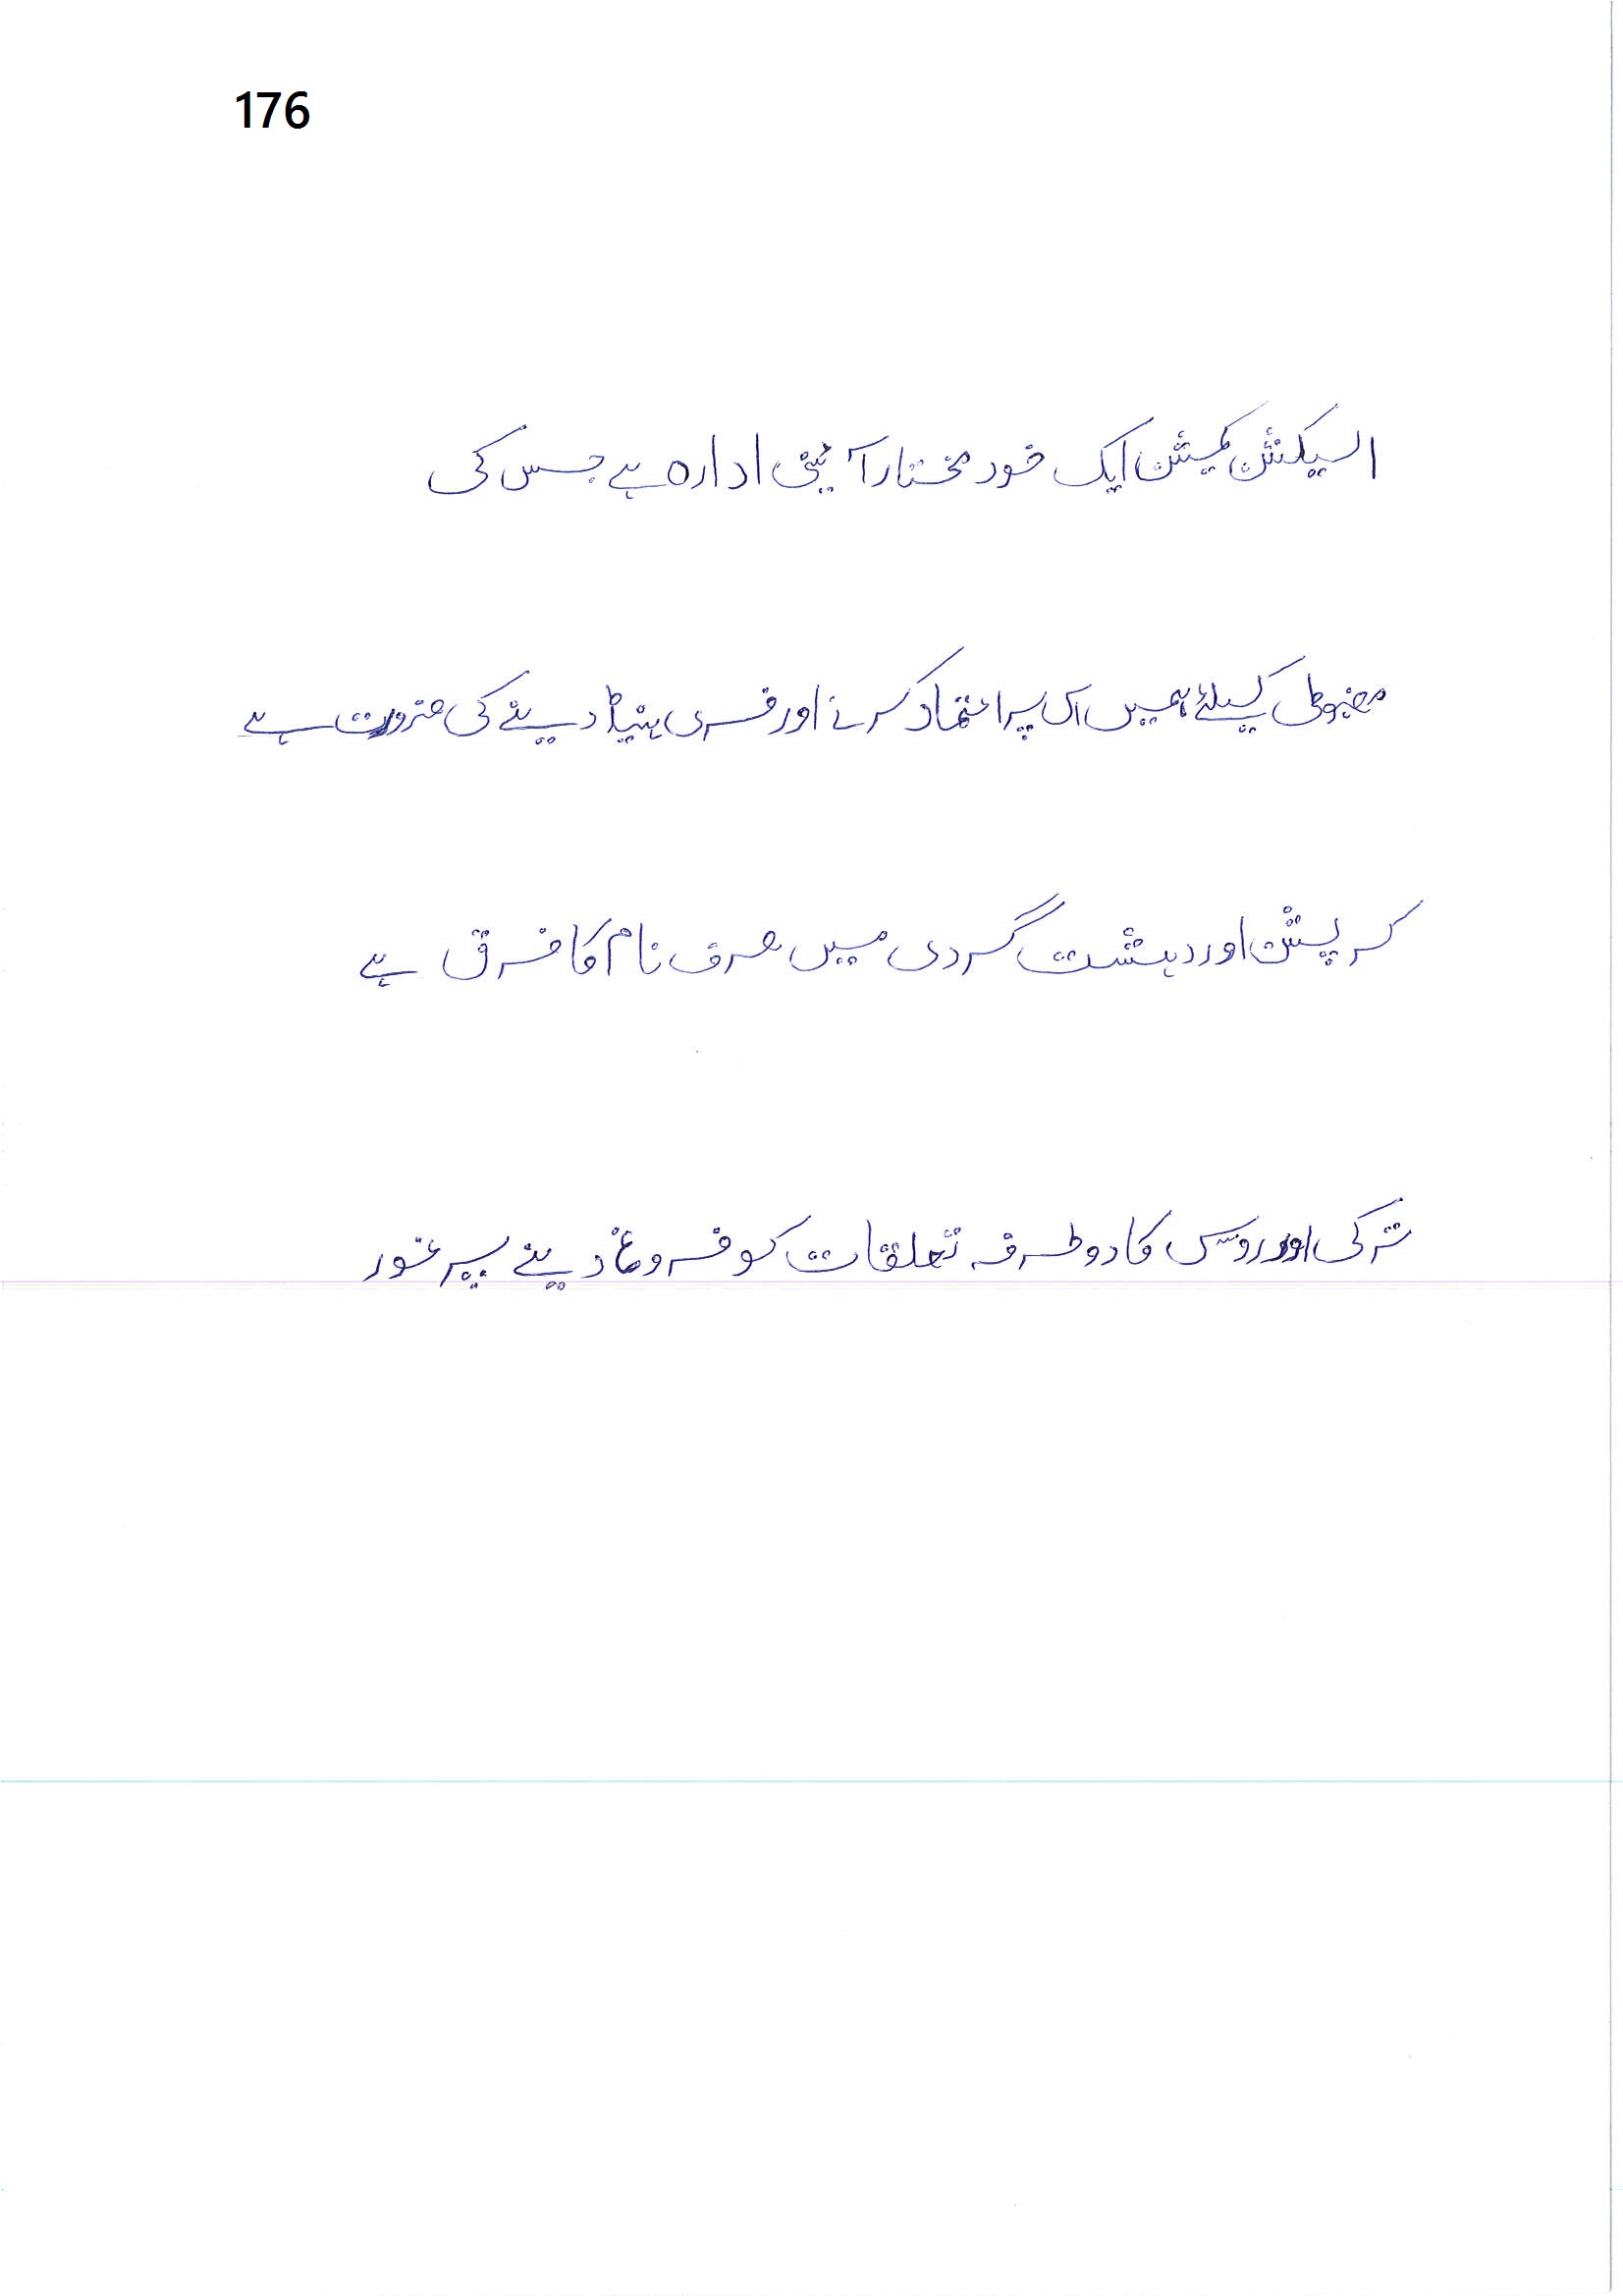 176
الیکشن کمیشن ایک خود مختار آئینی ادارہ ہے جس کی
مضبوطی کیلئے ہمیں اس پر اعتماد کرنے اور فری ہینڈ دینے کی ضرورت ہے
کرپشن اور دہشت گردی میں صرف نام کا فرق ہے
ترکی اور روس کا دو طرفہ تعلقات کو فروغ دینے پر غور